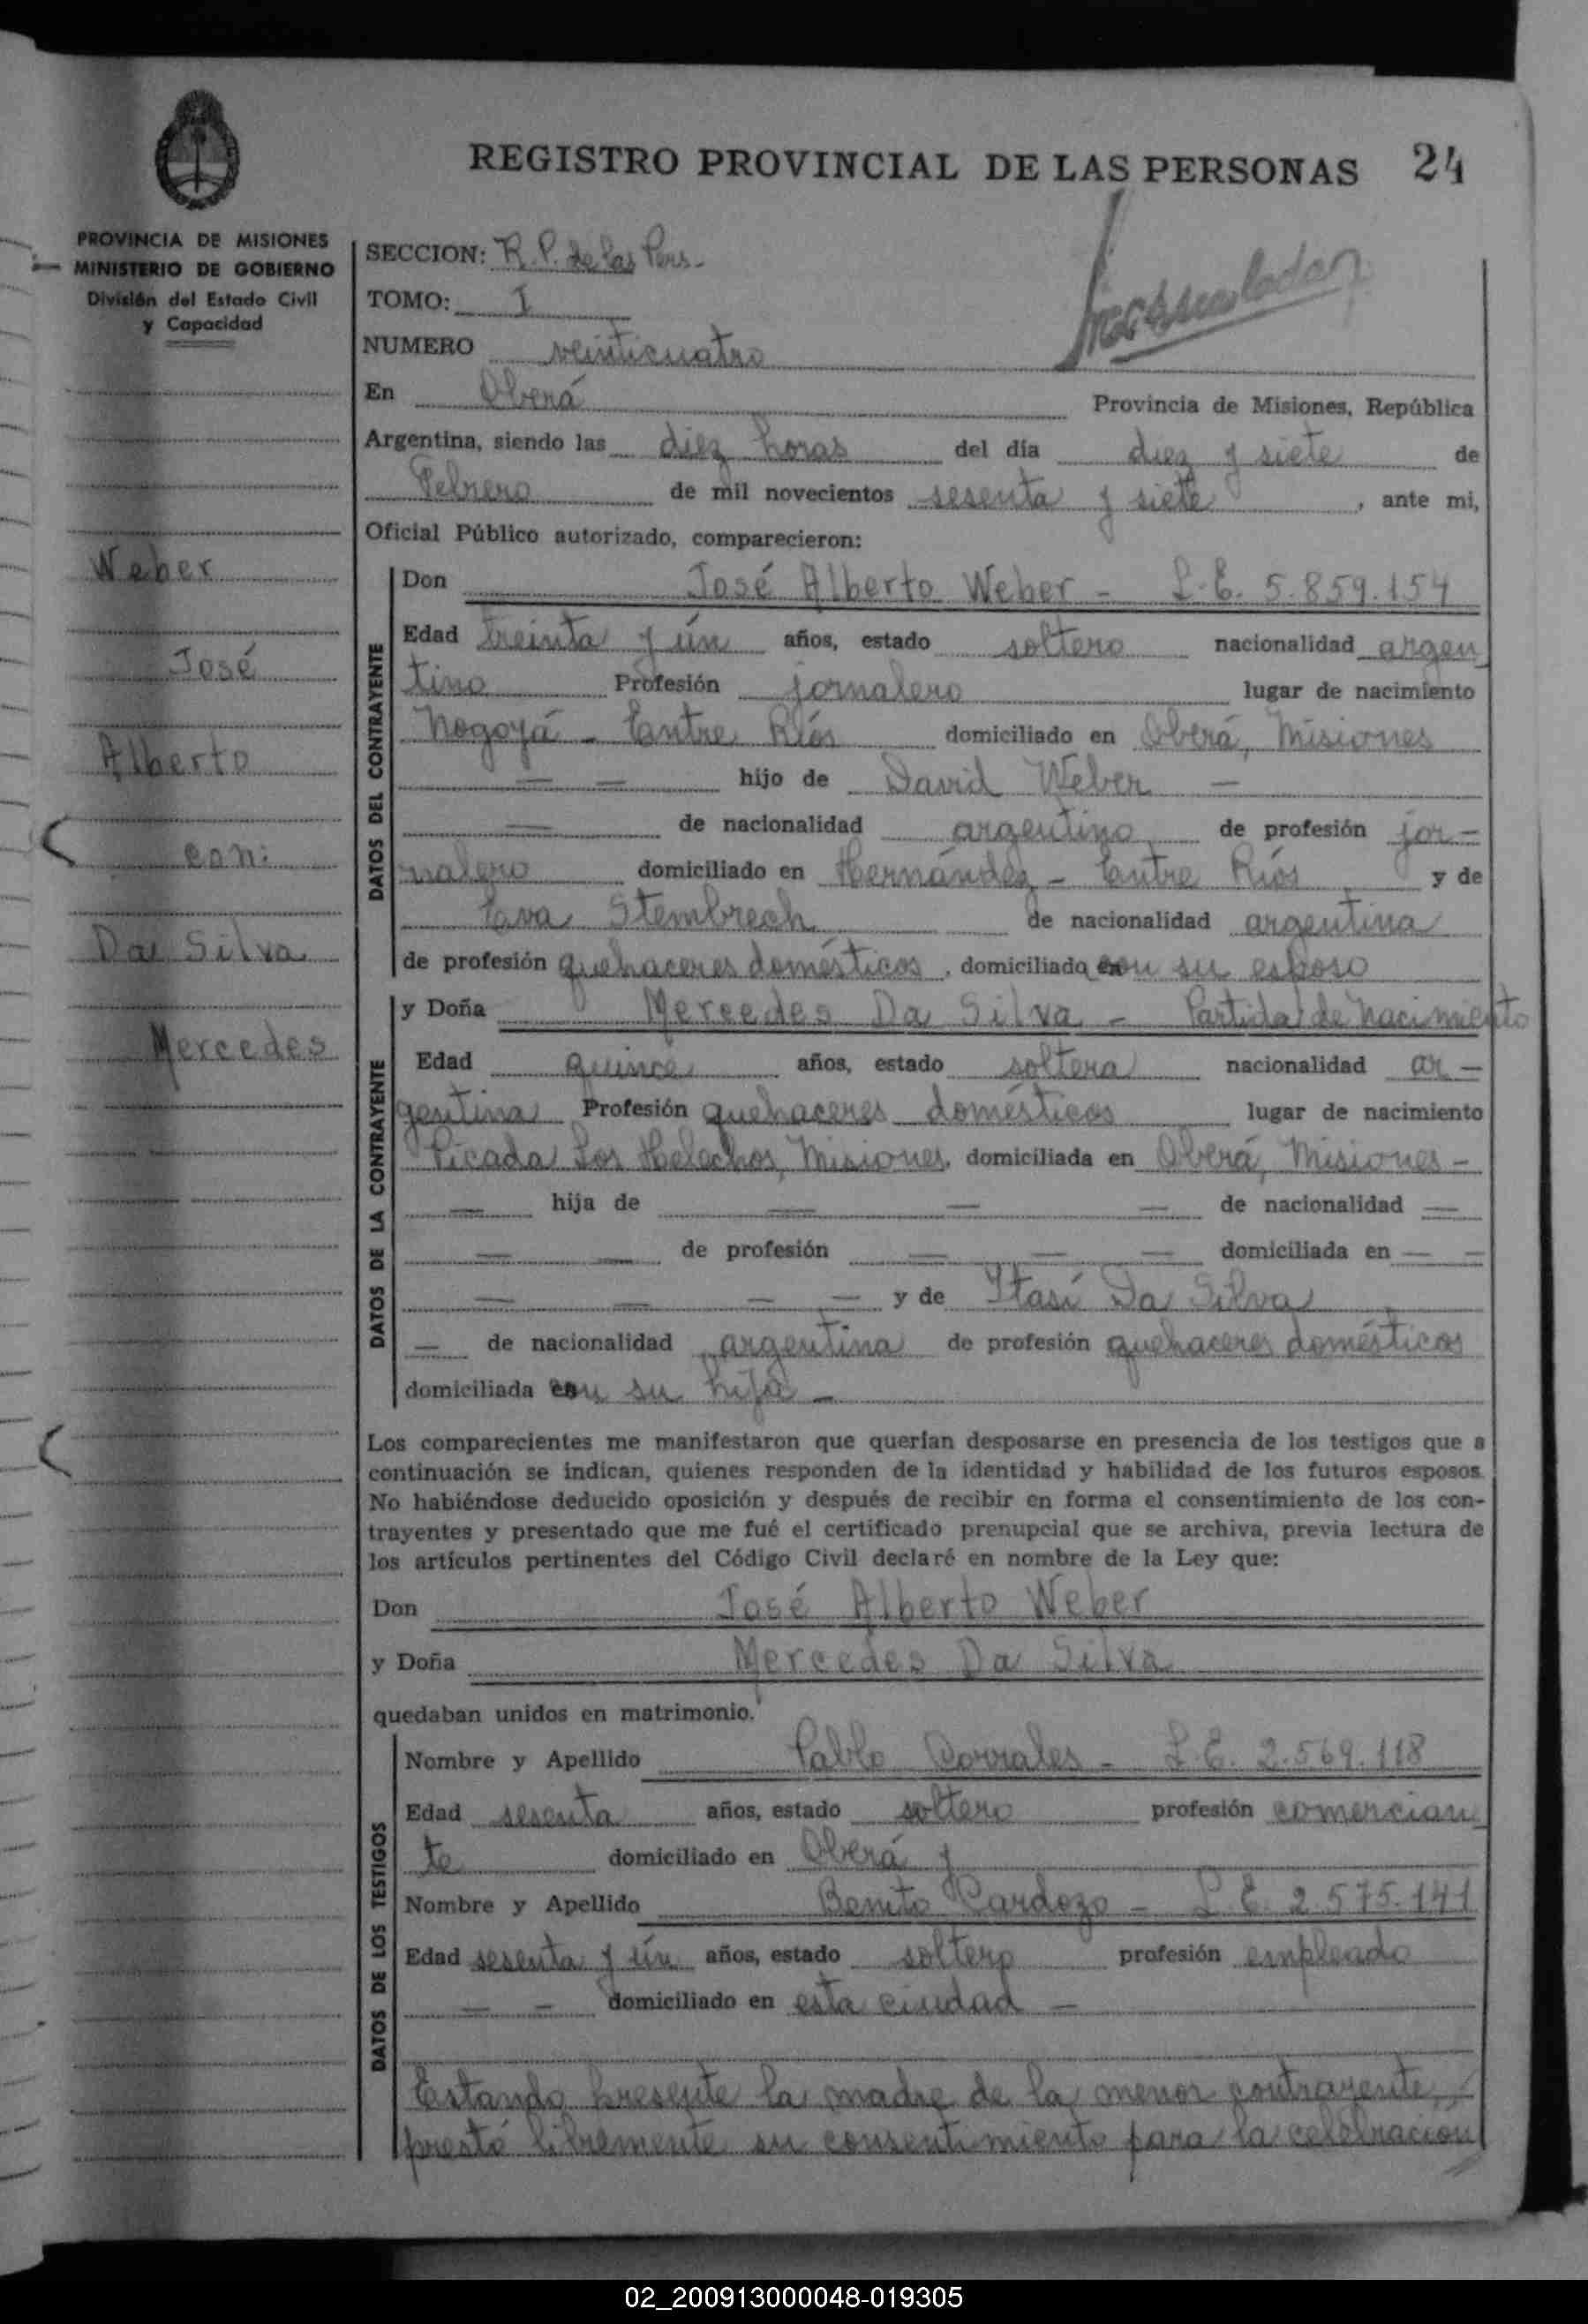 REGISTRO PROVINCIAL DE LAS PERSONAS 24
PROVINCIA DE MISIONES
MINISTERIO DE GOBIERNO
División del Estado Civil
y Capacidad
Weber
José
Alberto
con:
Da Silva
Mercedes
SECCION: R. P. de las Pers.
TOMO: I
NUMERO veinticuatro
En Oberá Provincia de Misiones, República
Argentina, siendo las diez horas del día diez y siete de
Febrero de mil novecientos sesenta y siete, ante mi,
Oficial Público autorizado, comparecieron:
DATOS DEL CONTRAYENTE
Don José Alberto Weber - L.E. 5.859.154
Edad treinta y ún años, estado soltero nacionalidad argen
tino Profesión jornalero lugar de nacimiento
Nogoyá - Entre Ríos domiciliado en Oberá, Misiones
— — hijo de David Weber —
— de nacionalidad argentino de profesión jor-
nalero domiciliado en Hernández - Entre Ríos y de
Eva Stembrech de nacionalidad argentina
de profesión quehaceres domésticos, domiciliada con su esposo
DATOS DE LA CONTRAYENTE
y Doña Mercedes Da Silva - Partida de nacimiento
Edad quince años, estado soltera nacionalidad ar-
gentina Profesión quehaceres domésticos lugar de nacimiento
Picada Los Helechos, Misiones, domiciliada en Oberá, Misiones -
— hija de — — — de nacionalidad —
— — de profesión — — — domiciliada en — —
— — — — y de Itasí Da Silva
— de nacionalidad argentina de profesión quehaceres domésticos
domiciliada con su hija -
Los comparecientes me manifestaron que querían desposarse en presencia de los testigos que a
continuación se indican, quienes responden de la identidad y habilidad de los futuros esposos.
No habiéndose deducido oposición y después de recibir en forma el consentimiento de los con-
trayentes y presentado que me fué el certificado prenupcial que se archiva, previa lectura de
los artículos pertinentes del Código Civil declaré en nombre de la Ley que:
Don José Alberto Weber
y Doña Mercedes Da Silva
quedaban unidos en matrimonio.
DATOS DE LOS TESTIGOS
Nombre y Apellido Pablo Corrales - L.E. 2.569.118
Edad sesenta años, estado soltero profesión comercian
te domiciliado en Oberá y
Nombre y Apellido Benito Cardozo - L.E. 2.575.141
Edad sesenta y ún años, estado soltero profesión empleado
— — domiciliado en esta ciudad —
Estando presente la madre de la menor contrayente,
prestó libremente su consentimiento para la celebración
02_200913000048-019305